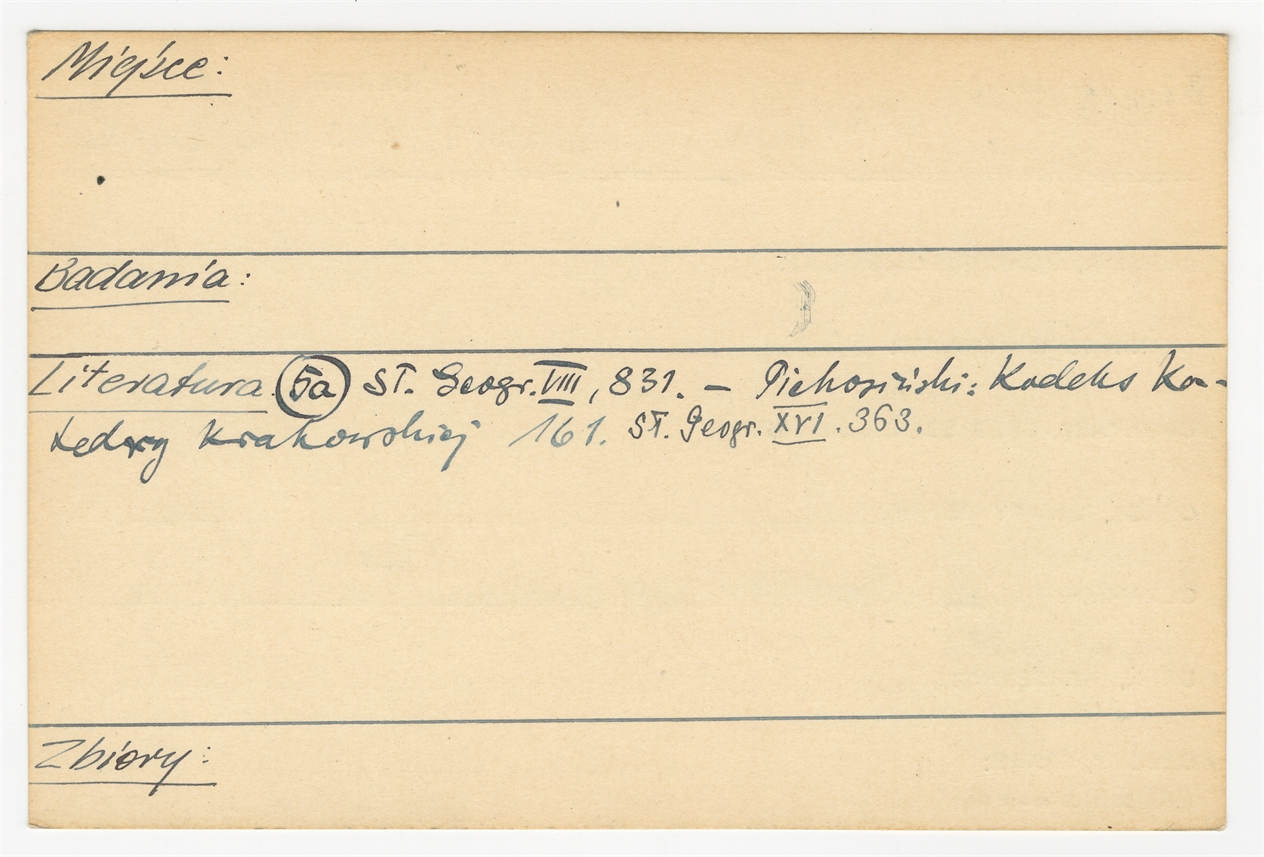 Miejsce:
Badania:
Literatura. 5a St. Geogr. VIII, 831. – Piekosiński: Kodeks Ka-
tedry Krakowskiej 161. St. Geogr. XVI. 363.
Zbiory: